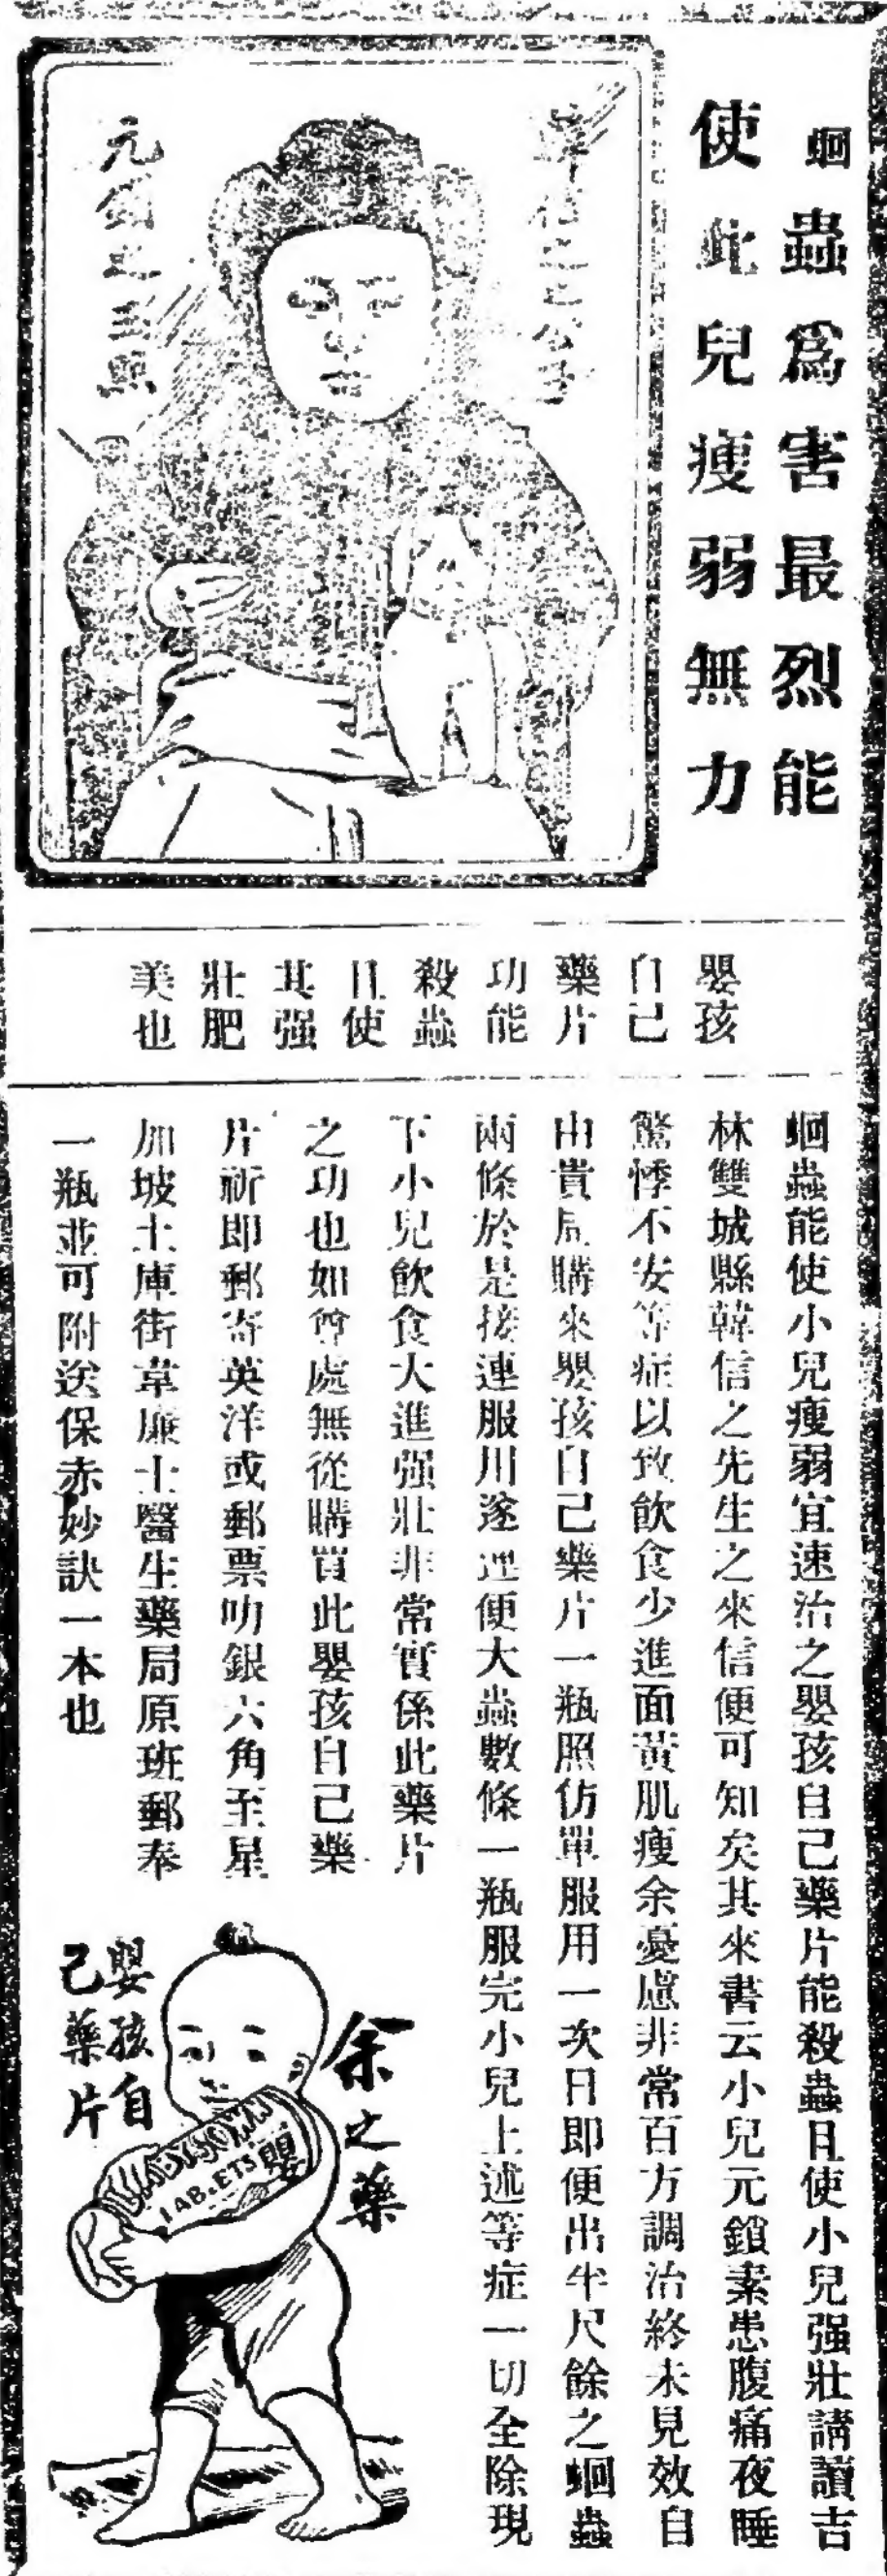 蛔蟲爲害最烈能
使此兒瘦弱無力
韓信之之公子
元鎖之玉照
嬰孩
自己
藥片
功能
殺蟲
且使
其强
壯肥
美也
蛔蟲能使小兒瘦弱宜速治之嬰孩自己藥片能殺蟲且使小兒强壯請讀吉
林雙城縣韓信之先生之來信便可知矣其來書云小兒元鎖素患腹痛夜睡
驚悸不安等症以致飲食少進面黃肌瘦余憂慮非常百方調治終未見效自
由貴局購來嬰孩自己藥片一瓶照仿單服用一次日即便出半尺餘之蛔蟲
兩條於是接連服用遂迆便大蟲數條一瓶服完小兒上述等症一切全除現
下小兒飲食大進强壯非常實係此藥片
之功也如尊處無從購買此嬰孩自己藥
片祈即郵寄英洋或郵票叻銀六角至星
加坡土庫街韋廉士醫生藥局原班郵奉
一瓶並可附送保赤妙訣一本也
余之藥
嬰孩自
己藥片
BABY'S OWN
TABLETS
嬰